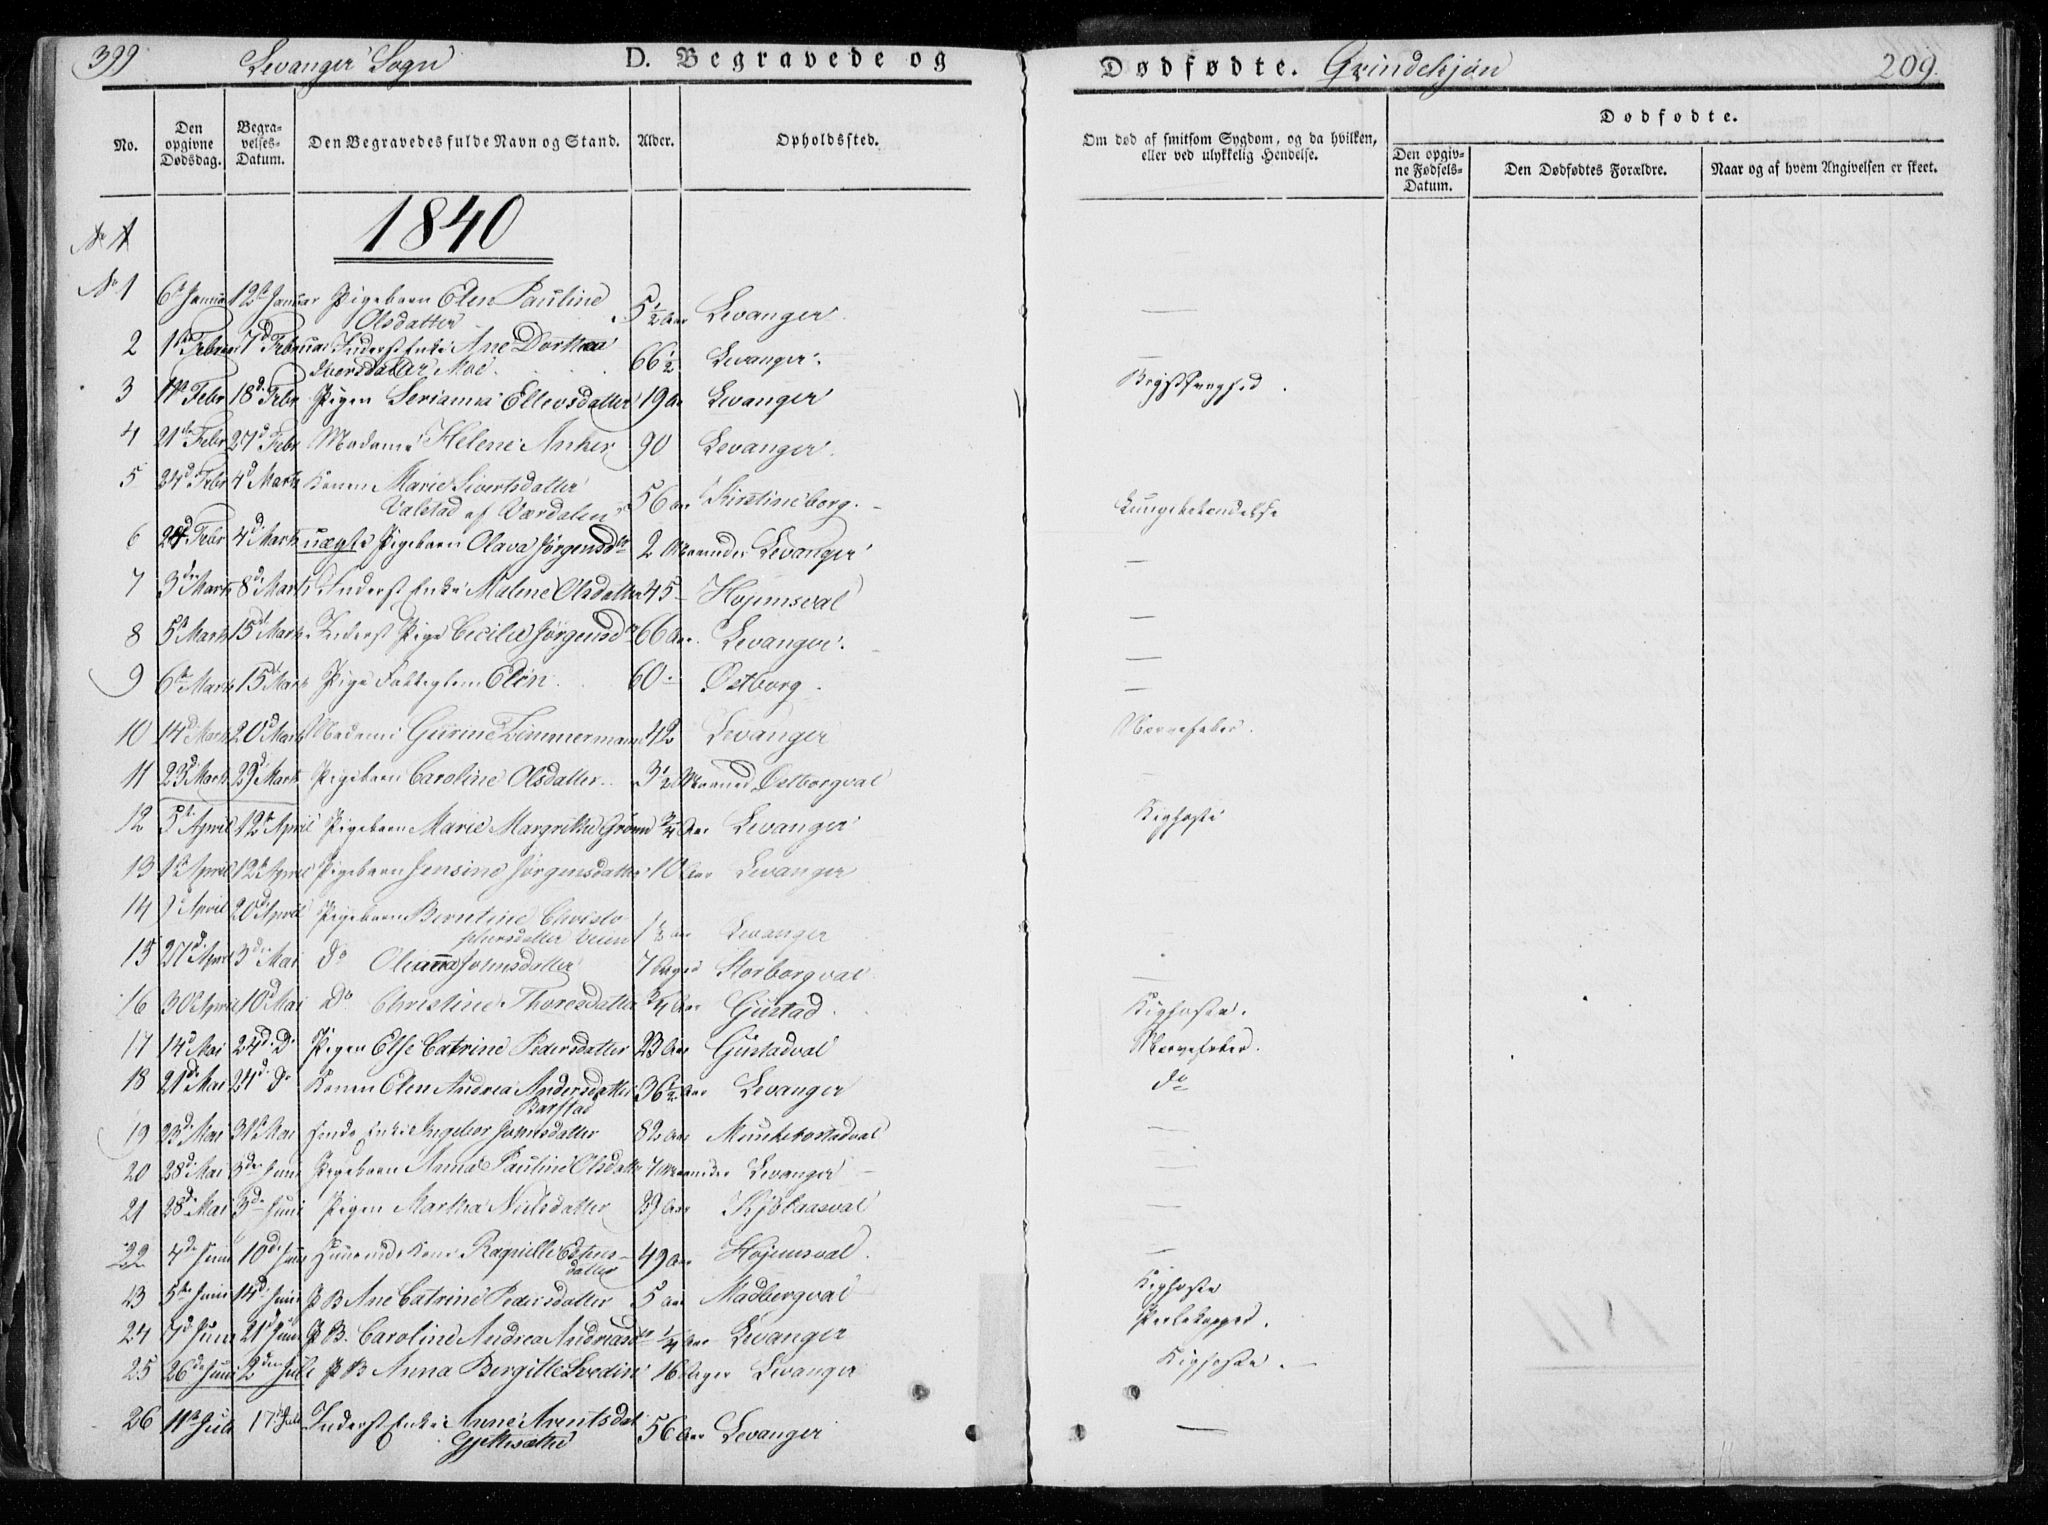 399 Levanger Sogn D. Begravede og Dødfødte. Qvindekjøn 209.
No. Den opgivne Dødsdag. Begravelses-Datum. Den Begravedes fulde Navn og Stand. Alder. Opholdssted. Om død af smitsom Sygdom, og da hvilken, eller ved ulykkelig Hendelse. Dødfødte.
Den opgivne Fødsels-Datum. Den Dødfødtes Forældre. Naar og af hvem Angivelsen er skeet.
1840
No 1
No 1 6te Januar 12te Januar Pigebarn Elen Pauline
Olsdatter 5 1/2 Aar Levanger —
2 1ste Februar 7d Februar Inderst Enke Ane Dorthea
Iversdatter Moe. 66 1/2 Levanger. —
3 11te Febr 18d. Febr Pigen Serianna Ellevsdatter 19 Aar Levanger Brystsvaghed.
4 21de Febr 27d. Febr Madame Helene Anker 90 Levanger.
5 24d. Febr 4d Marts Konen Marie Sivertsdatter
Valstad af Værdalen 56 Aar Kirstineborg. Lungebetændelse
6 24d Febr 4d. Marts uægte Pigebarn Olava Jørgensdr 2 Maaneder Levanger —
7 3die Marts 8d. Marts Inderst Enke Malene Olsdatter 45 Hojemsval —
8 5te Marts 15d Marts Inderst Pige Cecilie Jørgensdr 66 Aar. Levanger. —
9 6te Marts 15d Marts Pige Fattiglem Elen. 60 Østborg. —
10 14d. Marts 20d Marts Madame Gurine Zimmermann 42 Levanger Nervefeber.
11 23d Marts 29d Marts Pigebarn Caroline Olsdatter. 3 1/2 Maaned Østborgval —
12 5te April 12te April Pigebarn Marie Margrethe Grønn 3/4 Aar Levanger Kighoste
13 1ste April 12te April Pigebarn Jensine Jørgensdatter 10 Aar Levanger
14 April 20d. April Pigebarn Berntine Christo-
phersdatter Veien 1 1/2 Aar Levanger
15 27d. April 3die Mai do Oleanna Johnsdatter 7 Dage Storborgval
16 30te April 10d Mai Do Christine Thoresdatter 3/4 Aar Gjustad. Kighoste.
17 14d Mai 24d. Do Pigen Else Catrine Pedersdatter 23 Aar Gjustadval Nervefeber.
18 21de Mai 24d. do Konen Elen Andrea Andersdatter
Barstad 36 1/2 Aar Levanger do
19 23d. Mai 31te Mai Enke Ingebor Johnsdatter 82 Aar Munkerostadval —
20 28d. Mai 3die Juni Pigebarn Anna Pauline Olsdatter 7 Maaneder Levanger —
21 28d. Mai 3die Juni Pigen Martha Nielsdatter 39 Aar —
22 4de Juni 10d. Juni Kone Ragnille
datter 49 Aar Hojemsval. —
23 5te Juni 14d. Juni P B Ane Catrine Pedersdatter 5 Aar Madbergval Kighoste
24 7d. Juni 21d Juni P B. Caroline Andrea Andreasdr 1/4 Aar Levanger
25 26de Juni 2den Juli P B Anna Bergitte 16 Uger Levanger Kighoste. —
26 11te Juli 17d Juli Inderst Enke Anne Arentsdat
56 Aar Levanger —